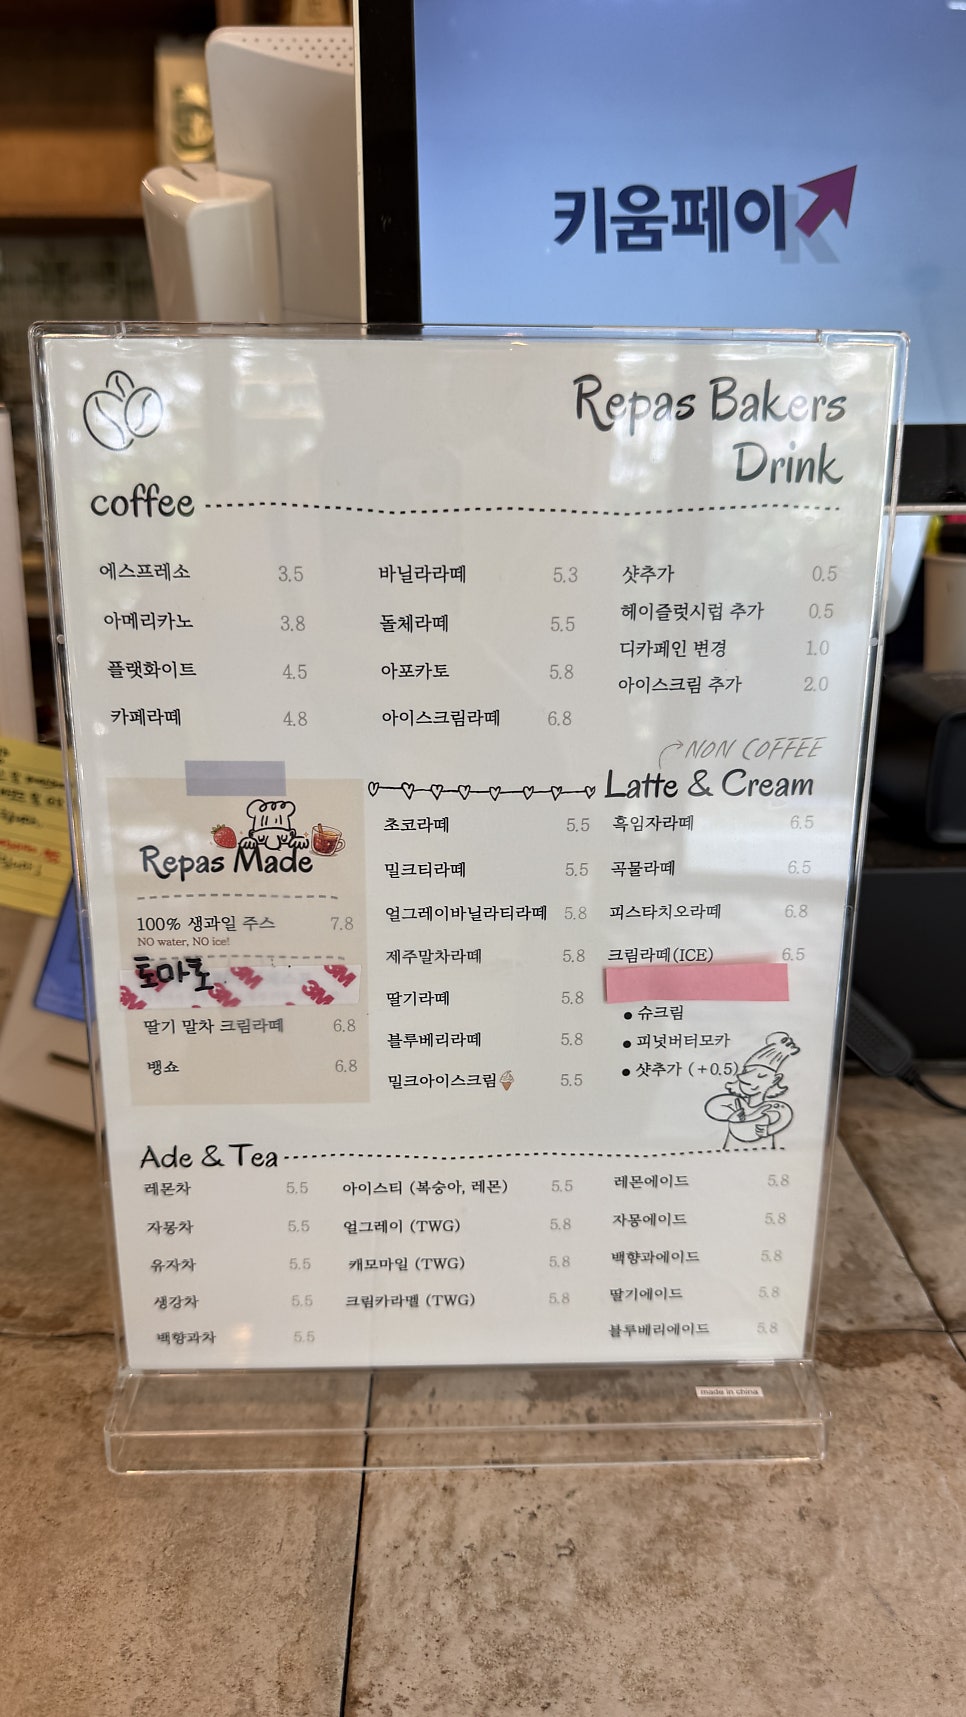 키움페이
Repas Bakers
Drink
coffee
에스프레소 3.5
아메리카노 3.8
플랫화이트 4.5
카페라떼 4.8
바닐라라떼 5.3
돌체라떼 5.5
아포카토 5.8
아이스크림라떼 6.8
샷추가 0.5
헤이즐럿시럽 추가 0.5
디카페인 변경 1.0
아이스크림 추가 2.0
Repas Made
100% 생과일 주스 7.8
NO water, NO ice!
토마토
3M 3M 3M 3M
딸기 말차 크림라떼 6.8
뱅쇼 6.8
NON COFFEE
Latte & Cream
초코라떼 5.5
밀크티라떼 5.5
얼그레이바닐라티라떼 5.8
제주말차라떼 5.8
딸기라떼 5.8
블루베리라떼 5.8
밀크아이스크림 5.5
흑임자라떼 6.5
곡물라떼 6.5
피스타치오라떼 6.8
크림라떼(ICE) 6.5
● 슈크림
● 피넛버터모카
● 샷추가 (+0.5)
Ade & Tea
레몬차 5.5
자몽차 5.5
유자차 5.5
생강차 5.5
백향과차 5.5
아이스티 (복숭아, 레몬) 5.5
얼그레이 (TWG) 5.8
캐모마일 (TWG) 5.8
크림카라멜 (TWG) 5.8
레몬에이드 5.8
자몽에이드 5.8
백향과에이드 5.8
딸기에이드 5.8
블루베리에이드 5.8
made in china